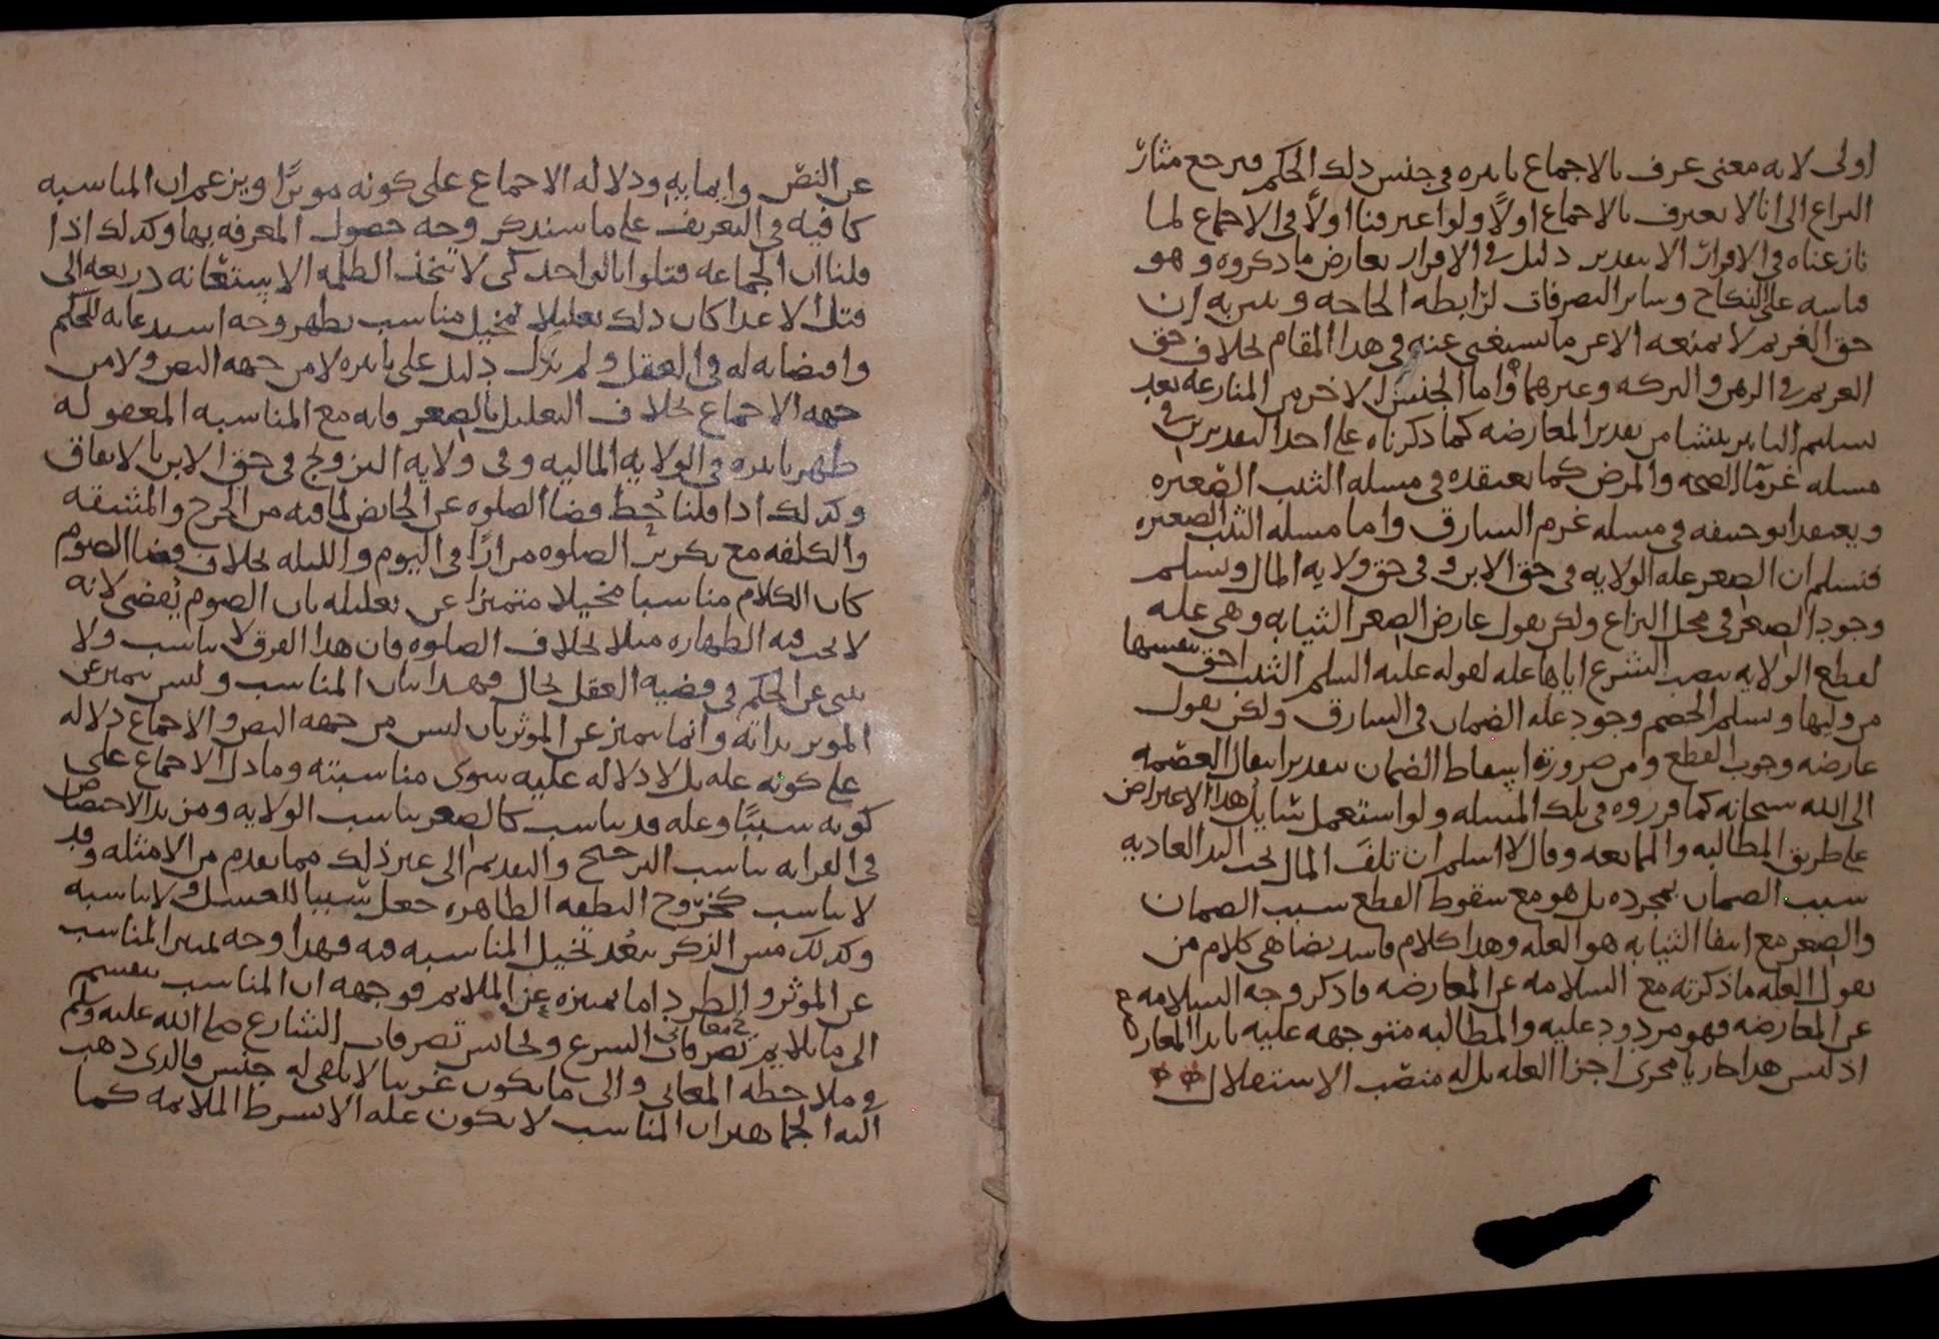 اولى لانه معنى عرف بالاجماع تاثيره في جنس ذلك الحكم فيرجع مثار
النزاع الى انا لا نعترف بالاجماع اولا ولو اعترفنا اولا في الاجماع لما
نازعناه في الاقرار الا بتقدير دليل في الاقرار يعارض ما ذكروه وهو
قياسه على النكاح وساير التصرفات لرابطه الحاجه ونبين به ان
حق الغريم لا يمنعه الا عن ما يستغني عنه في هذا المقام بخلاف حق
الغريم في الرهن والتركه وغيرهما واما الجنس الاخر من المنازعه بعد
تسليم التاثير ينشا من تقدير المعارضه كما ذكرناه على احد التقديرين في
مسله غرما الصحه والمرض كما نعتقده في مسله الثيب الصغيره
ويعتقد ابو حنيفه في مسله غرم السارق واما مسله الثيب الصغيره
فنسلم ان الصغر عله الولايه في حق الابن وفي حق ولايه المال ونسلم
وجود الصغر في محل النزاع ولكن نقول عارض الصغر الثيابه وهي عله
لقطع الولايه بنصب الشرع اياها عله لقوله عليه السلم الثيب احق بنفسها
من وليها ونسلم للخصم وجود عله الضمان في السارق ولكن نقول
عارضه وجوب القطع ومن ضرورته اسقاط الضمان بتقدير انتقال العصمه
الى الله سبحانه كما قرروه في تلك المسله ولو استعمل سايل هذا الاعتراض
على طريق المطالبه والممانعه وقال لا اسلم ان تلف المال تحت اليد العاديه
سبب الضمان بمجرده بل هو مع سقوط القطع سبب الضمان
والصغر مع انتفا الثيابه هو العله وهذا كلام فاسد يضاهي كلام من
يقول العله ما ذكرته مع السلامه عن المعارضه فاذكر وجه السلامه
عن المعارضه فهو مردود عليه والمطالبه متوجهه عليه بابدا المعارض
اذ ليس هذا جاريا مجرى اجزا العله بل له منصب الاستقلال
عن النص وايمايه ودلاله الاجماع على كونه موثرا ويزعم ان المناسبه
كافيه في التعريف على ما سنذكر وجه حصول المعرفه بها وكذلك اذا
قلنا ان الجماعه قتلوا بالواحد كي لا تتخذ الظلمه الاستعانه ذريعه الى
قتل الاعدا كان ذلك تعليلا بمخيل مناسب يظهر وجه استدعايه للحكم
واقتضايه له في العقل ولم يدل دليل على تاثيره لا من جهه النص ولا من
جهه الاجماع بخلاف التعليل بالصغر فانه مع المناسبه المعقوله
ظهر تاثيره في الولايه الماليه وفي ولايه التزويج في حق الابن بالاتفاق
وكذلك اذا قلنا حط قضا الصلوه عن الحايض لما فيه من الحرج والمشقه
والكلفه مع تكرر الصلوه مرارا في اليوم والليله بخلاف قضا الصوم
كان الكلام مناسبا مخيلا متميزا عن تعليله بان الصوم يقضى لانه
لا تجب فيه الطهاره مثلا بخلاف الصلوه فان هذا الفرق لا يناسب ولا
ينبي عن الحكم في قضيه العقل بحال فهذا بيان المناسب وليس يتميز عن
الموثر بذاته وانما يتميز عن الموثر بان ليس من جهه النص والاجماع دلاله
على كونه عله بل لا دلاله عليه سوى مناسبته وما دل الاجماع على
كونه سببا وعله قد يناسب كالصغر يناسب الولايه ومزيد الاختصاص
في القرابه يناسب الترجيح والتقديم الى غير ذلك مما تقدم من الامثله وقد
لا يناسب كخروج النطفه الطاهره جعل سببا للغسل ولا يناسبه
وكذلك مس الذكر يبعد تخيل المناسبه فيه فهذا وجه تميز المناسب
عن الموثر والطرد اما تميزه عن الملايم فوجهه ان المناسب ينقسم
الى ما يلايم معاني تصرفات الشرع ويجانس تصرفات الشارع صلى الله عليه وسلم
في ملاحظه المعاني والى ما يكون غريبا لا يلفى له جنس فالذي ذهب
اليه الجماهير ان المناسب لا يكون عله الا بشرط الملايمه كما